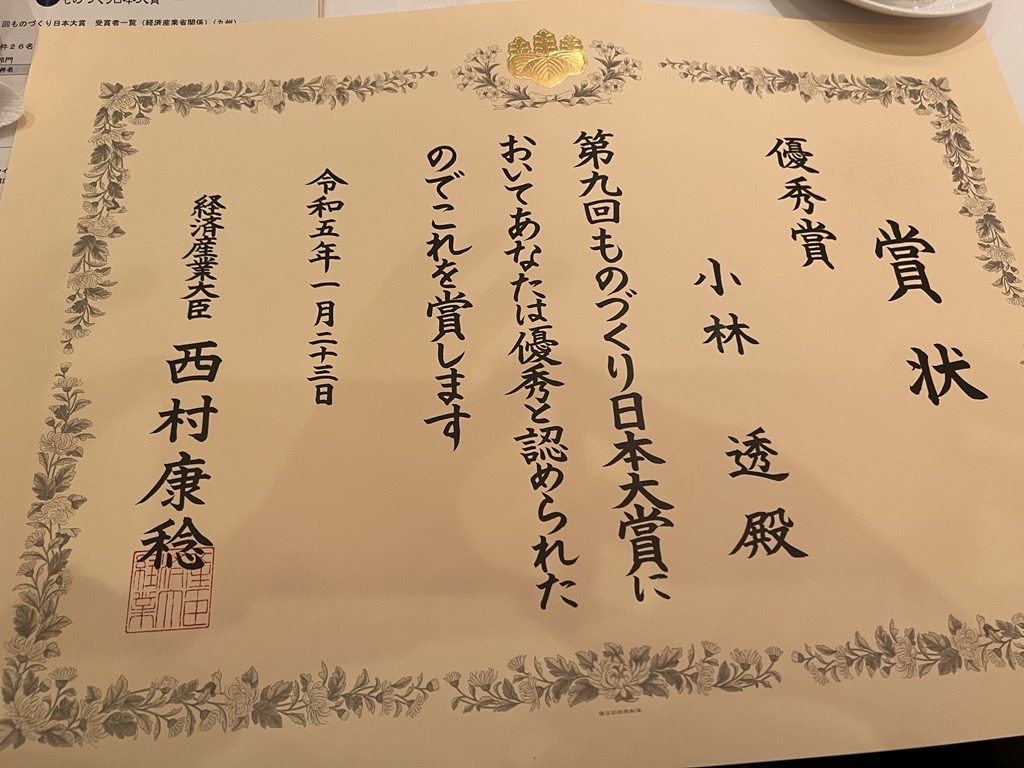 賞状
優秀賞
小林透殿
第九回ものづくり日本大賞に
おいてあなたは優秀と認められた
のでこれを賞します
令和五年一月二十三日
経済産業大臣 西村康稔
回ものづくり日本大賞 受賞者一覧(経済産業省関係)(九州)
件26名
部門
件名